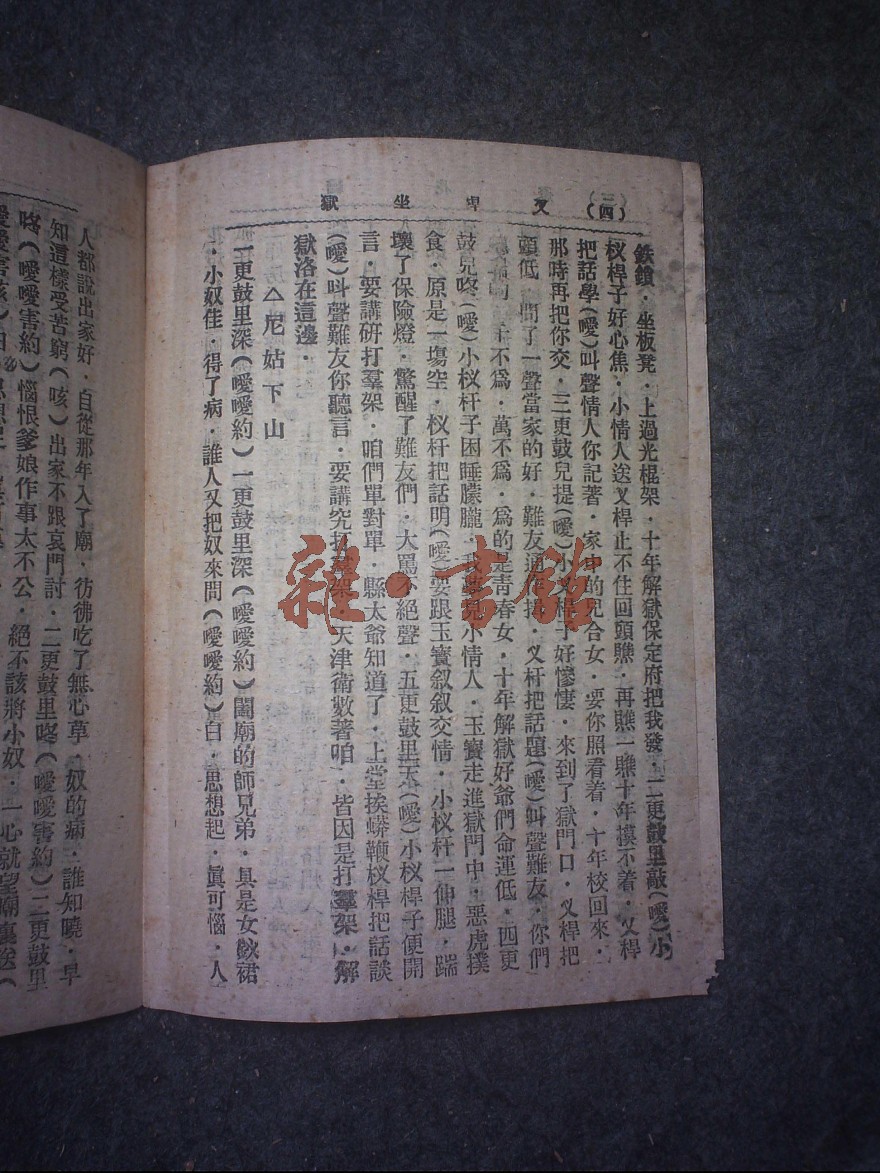 （四）　叉桿坐獄
鉄鎖．坐板凳．上過光棍架．十年解獄保定府把我發．二更鼓里敲（噯）小
杈桿子好心焦．小情人送叉桿止不住回頭瞧．再瞧一瞧十年摸不着．叉桿
把話學（噯）叫聲情人你記著．家中的兒合女．要你照看着．十年校回來．
那時再把你交．三更鼓兒提（噯）小叉桿子好慘悽．來到了獄門口．叉桿把
頭低．問了一聲當家的好．難友通
叉杆把話題（噯）叫聲難友．你們
干不爲．萬不爲．爲的是青春女．十年解獄好爺們命運低．四更
鼓兒咚（噯）小杈杆子困睡朦朧．我夢見小情人．玉寶走進獄門中．惡虎撲
食．原是一塲空．杈杆把話明（噯）要跟玉寶叙叙交情．小杈杆一伸腿．踹
壞了保險燈．驚醒了難友們．大罵不絕聲．五更鼓里天（噯）小杈桿子便開
言．要講研打羣架．咱們單對單．縣太爺知道了．上堂挨蟒鞭杈桿把話談
（噯）叫聲難友你聽言．要講究打羣架．天津衛數著咱．皆因是打羣架．解
獄洛在這邊．
△尼姑下山
一更鼓里深（噯噯約）一更鼓里深（噯噯約）闔廟的師兄弟．具是女釵裙
．小奴佳．得了病．誰人又把奴來問（噯噯約）白．思想起．眞可惱．人
人都說出家好．自從那年入了廟．彷彿吃了無心草．奴的病．誰知曉．早
知這樣受苦窮（咳）出家不跟哀門討．二更鼓里咚（噯噯害約）二更鼓里
咚（噯噯害約）惱恨爹娘作事太不公．絕不該將小奴．一心就望廟裏送（